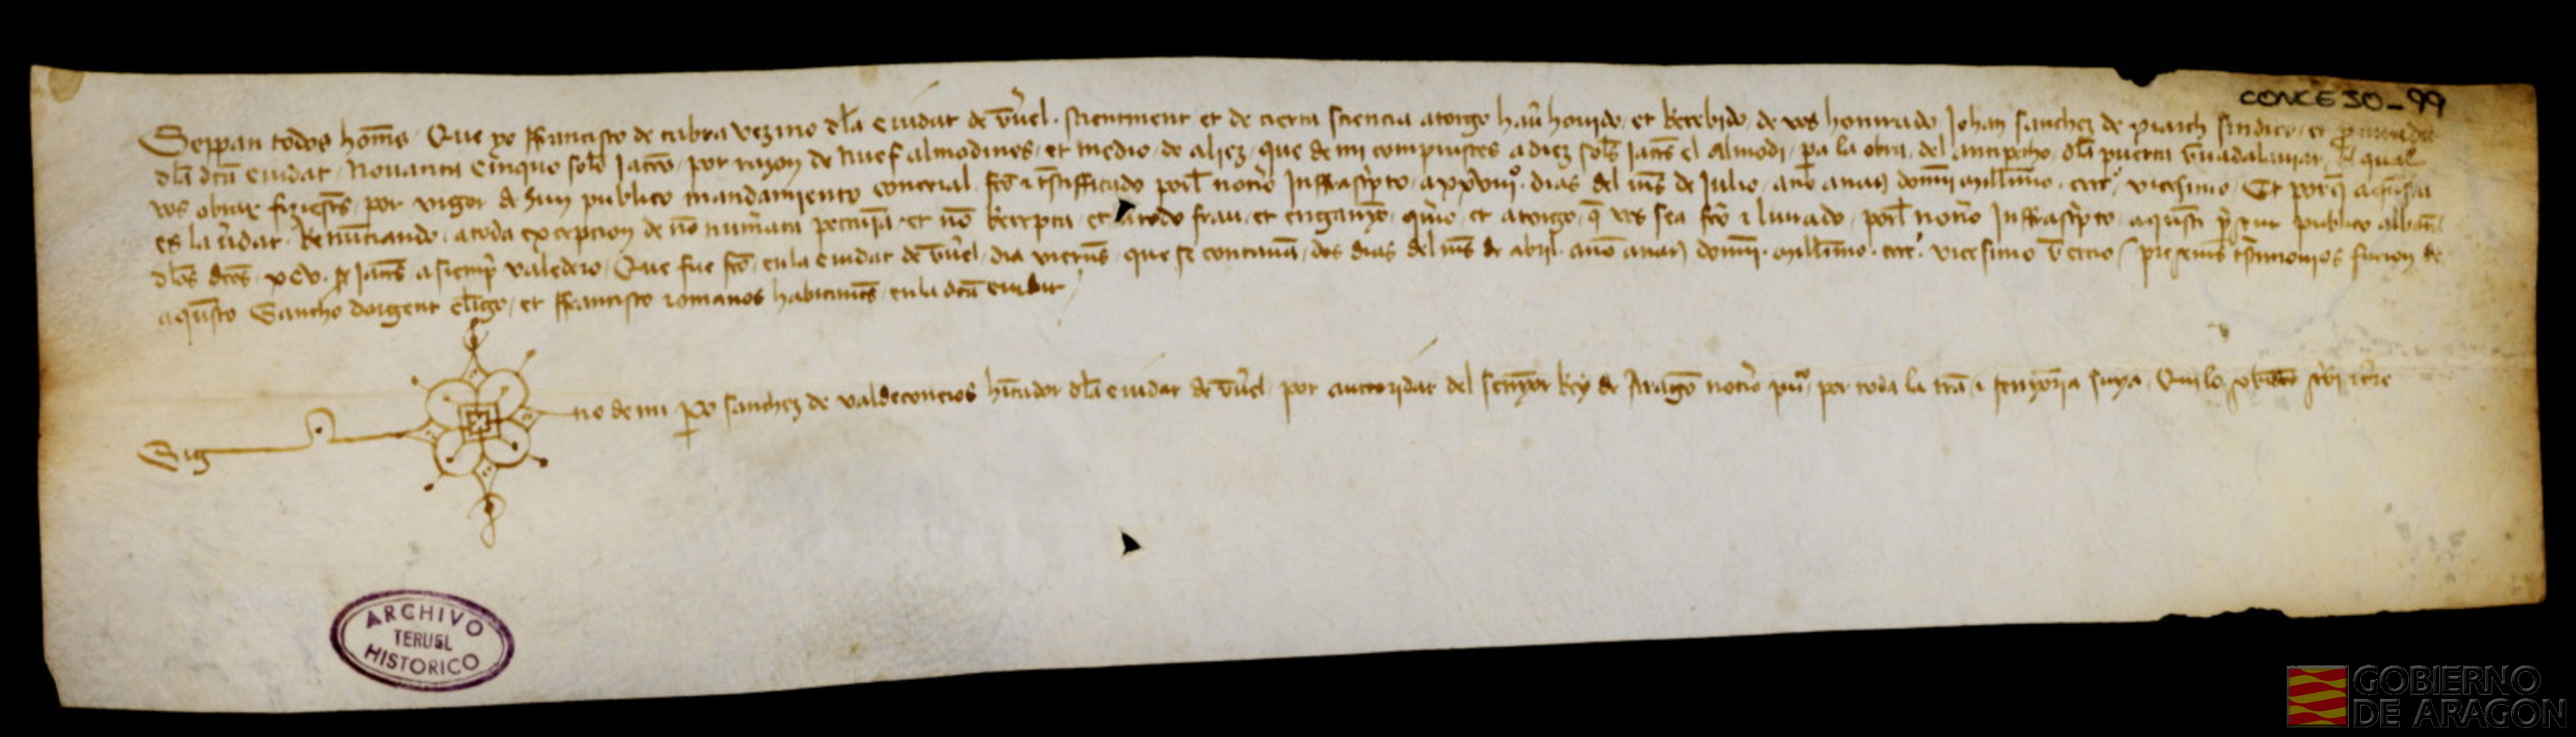 CONCEJO - 99
Seppan todos hom̄s Que yo ffrancisco de cubra vezino dla ciudat de T̄uel scientment et de cierta sciencia atorgo hau̅ houido et Recebido de vos honrrado Johan sanchez de sindico et
dla dcā ciudat Nouanta cinquo sol̅ Jacc̅o por razon de nuef almodines et medio de aliez que de mi comprastes a diez sol̅s Jacc̅s el Almodi pa la obra del antipecho dla puerta Guadalauiar qual
vos obrar fiziest̅s por vigor de hun publico mandamiento concejal fc̅o i t̅stifficado porl not̅io Inffrascpto a xxviijº dias del m̅s de Julio an̅o a nat̅ domini mill̅imo cccº vicesimo Et porq̅ aquesta
es la u̅dat Renu̅ciando a toda excepcion de no̅ num̅ata peccu̅ia et no̅ Recepta et a todo frau et enganyo q̅ero et atorgo q̅ vos sea fc̅o i liurado porl not̅io Inffrascpto aquesti p̅sent publico albara̅
dlos dc̅os xcv ss Jacc̅s a siemp̅ valedero Que fue fc̅o en la ciudat de T̄uel dia viern̅s que se contaua̅ dos dias del m̅s de abril an̅o a nat̅ domini mill̅imo cccº vicesimo T̅ercio presens t̅stimonios fueron de
aquesto Sancho dargent cl̅igo et ffrancisco romanos habitant̅s en la dcā ciudat
Sig no de mi Pº sanchez de valdeconeios h̅itador dla ciudat de T̄uel por auctoridat del senyor Rey de Arago̅ not̅io puº por toda la t̅ra i senyoria suya Qui lo sob̅dito sc̅bi
ARCHIVO
TERUEL
HISTORICO
GOBIERNO
DE ARAGON